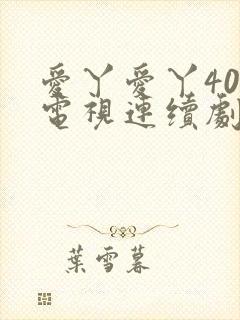 愛丫愛丫40
電視連續劇
葉雪暮